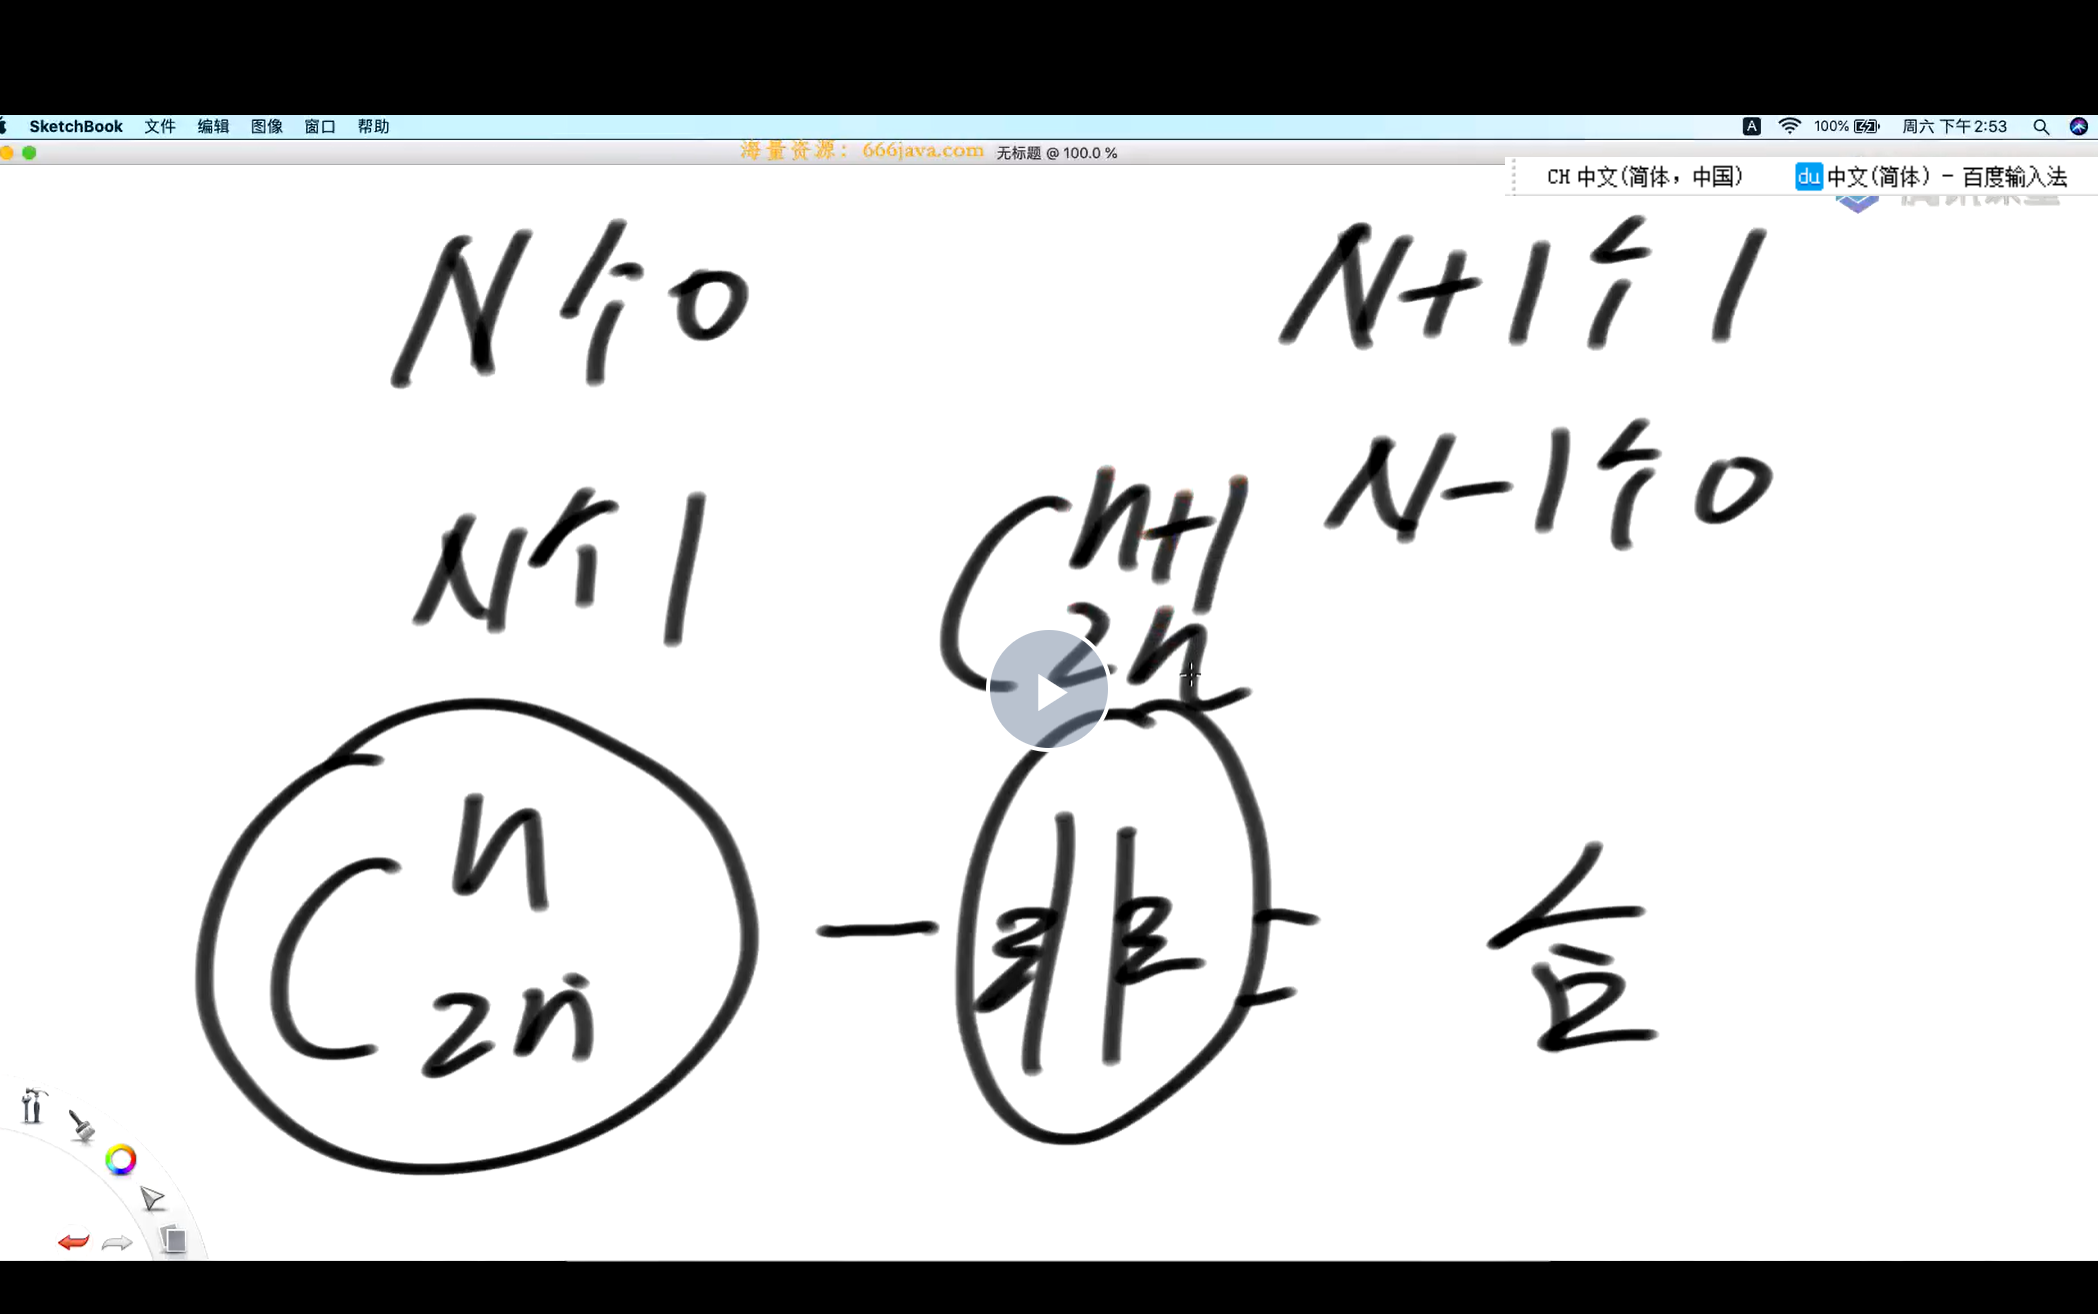 SketchBook 文件 编辑 图像 窗口 帮助 A 100% 周六 下午2:53
海量资源：666java.com 无标题 @ 100.0 %
CH 中文(简体，中国) du 中文(简体) - 百度输入法
腾讯课堂
N个0
N+1个1
N-1个0
N个1
C n+1 2n
C n 2n - 非 = 合